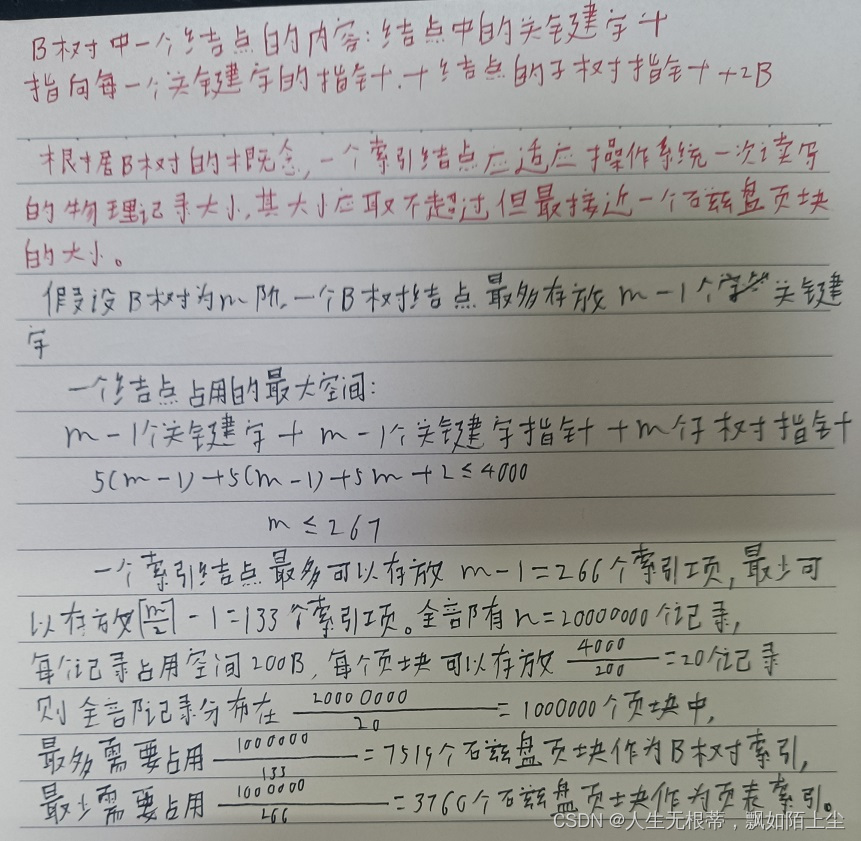 B树中一个结点的内容:结点中的关键字+
指向每一个关键字的指针.+结点的子树指针+2B
根据B树的概念,一个索引结点应适应操作系统一次读写
的物理记录大小,其大小应取不超过但最接近一个磁盘页块
的大小。
假设B树为m阶.一个B树结点最多存放m-1个关键
字
一个结点占用的最大空间:
m-1个关键字+m-1个关键字指针+m个子树指针
5(m-1)+5(m-1)+5m+2≤4000
m≤267
一个索引结点最多可以存放m-1=266个索引项,最少可
以存放⌈m/2⌉-1=133个索引项。全部有n=20000000个记录,
每个记录占用空间200B,每个页块可以存放4000/200=20个记录
则全部记录分布在20000000/20=1000000个页块中,
最多需要占用1000000/133=7519个磁盘页块作为B树索引,
最少需要占用1000000/266=3760个磁盘页块作为页表索引。
CSDN @人生无根蒂,飘如陌上尘